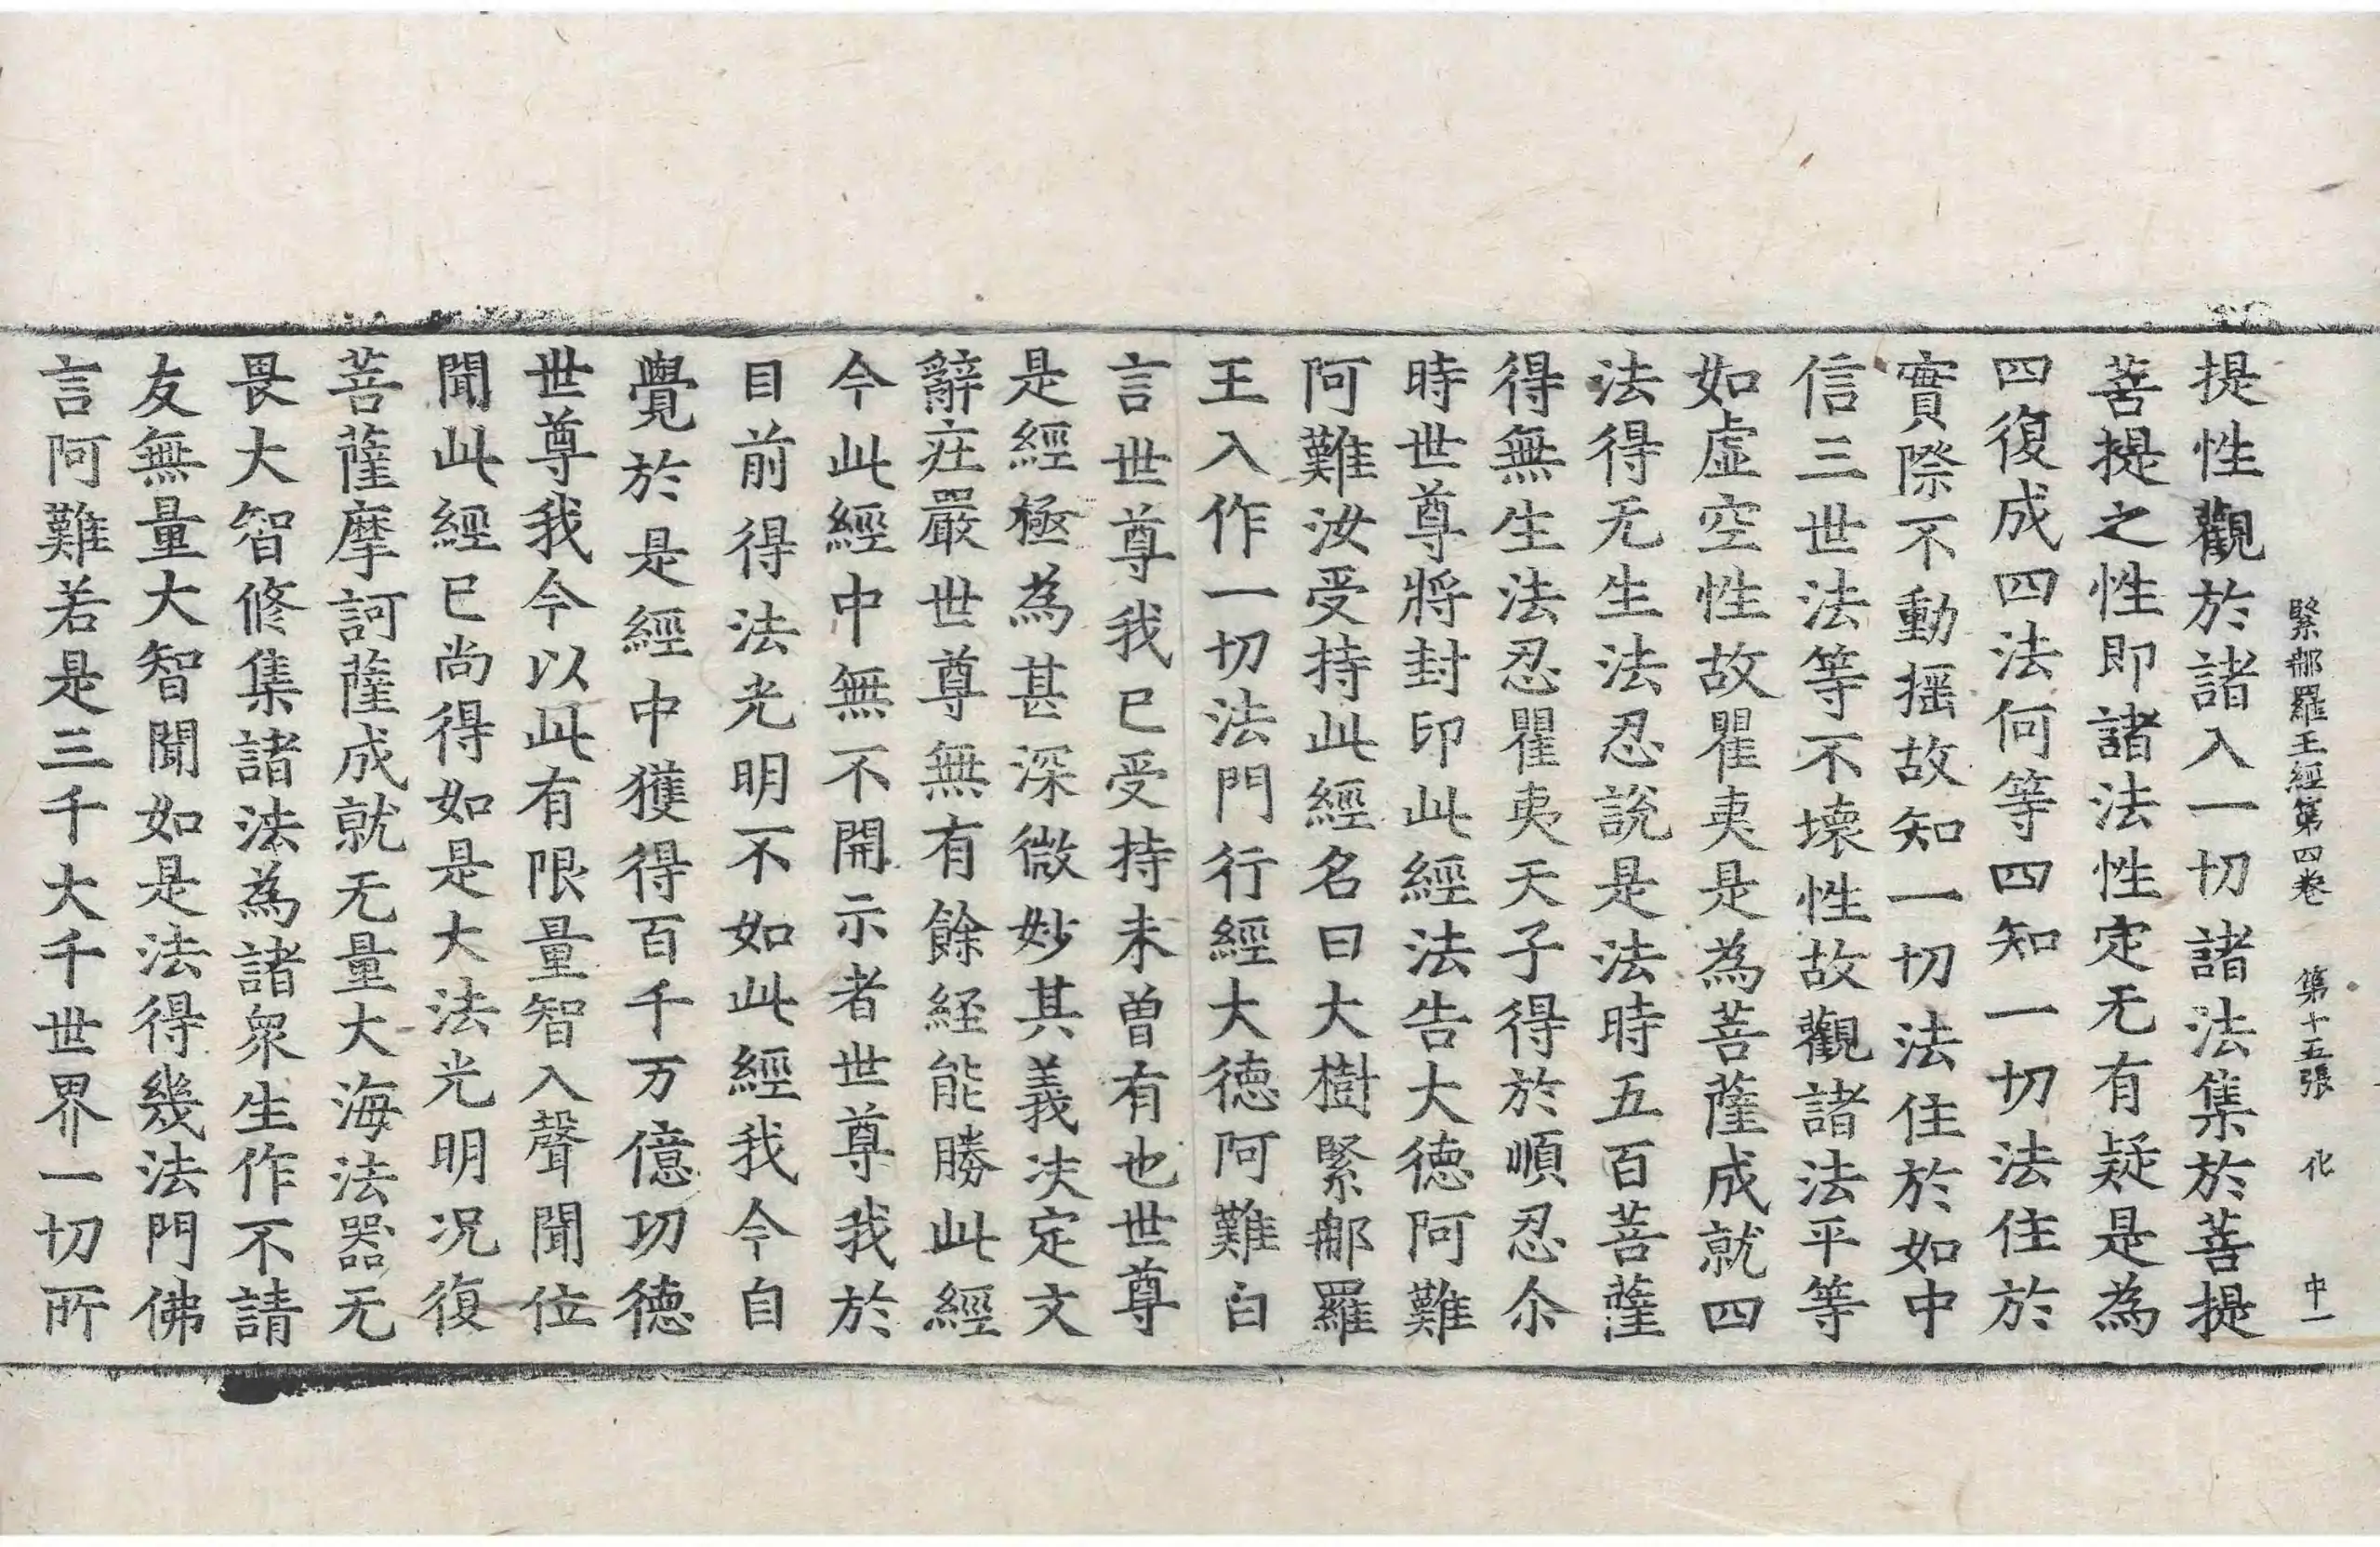 緊䣘羅王經第四卷　第十五張　化　中一
提性觀於諸入一切諸法集於菩提
菩提之性即諸法性定无有疑是為
四復成四法何等四知一切法住於
實際不動揺故知一切法住於如中
信三世法等不壊性故觀諸法平等
如虛空性故瞿夷是為菩薩成就四
法得无生法忍說是法時五百菩薩
得無生法忍瞿夷天子得於順忍尒
時世尊將封印此經法告大德阿難
阿難汝受持此經名曰大樹緊䣘羅
王入作一切法門行經大德阿難白
言世尊我已受持未曽有也世尊
是經極為甚深微妙其義决定文
辭疘嚴世尊無有餘経能勝此經
今此經中無不開示者世尊我於
目前得法光明不如此經我今自
覺於是經中獲得百千万億功德
世尊我今以此有限量智入聲聞位
聞此經已尚得如是大法光明况復
菩薩摩訶薩成就无量大海法器无
畏大智修集諸法為諸衆生作不請
友無量大智聞如是法得幾法門佛
言阿難若是三千大千世界一切所